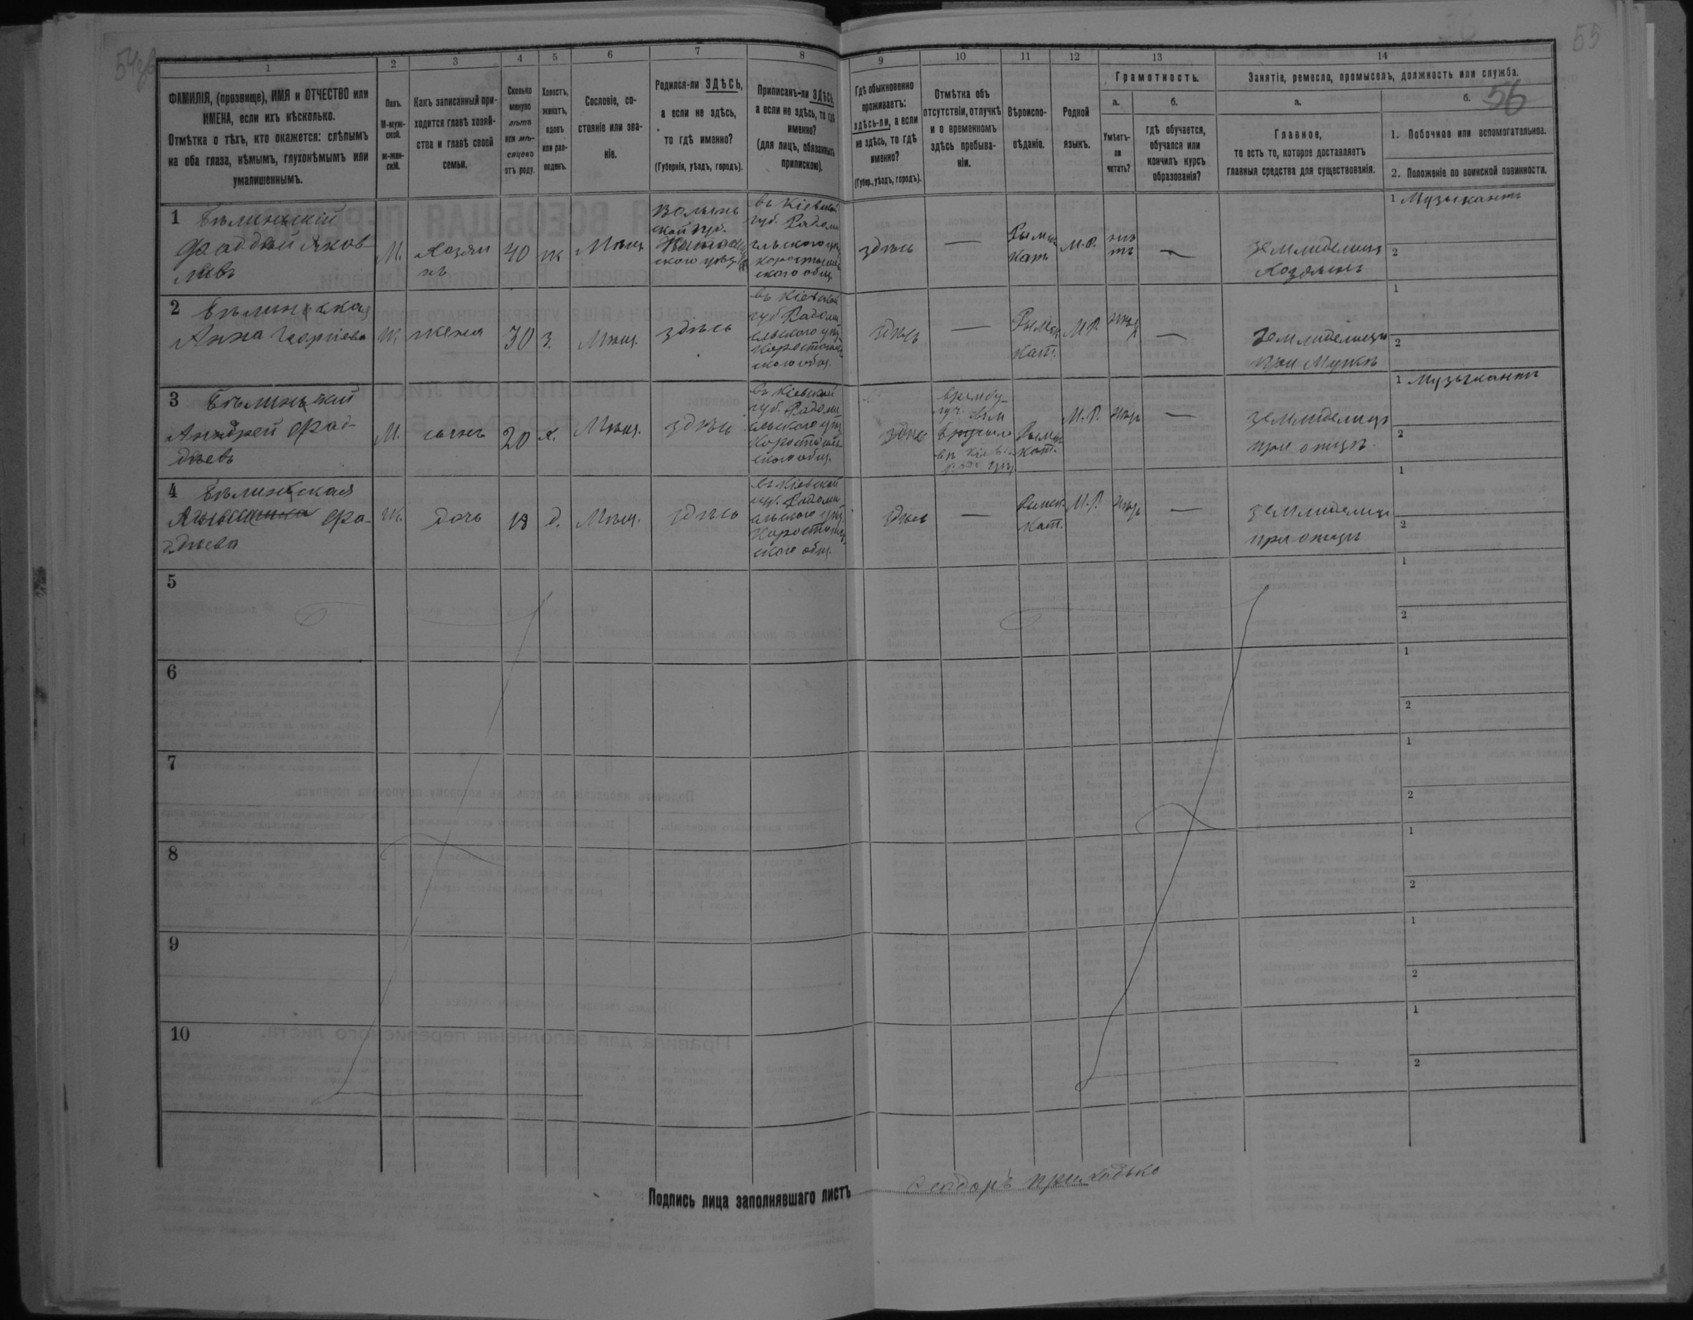 55
56
1
2
3
4
5
6
7
8
9
10
11
12
13
14
ФАМИЛІЯ, (прозвище), ИМЯ и ОТЧЕСТВО или
ИМЕНА, если ихъ нѣсколько.
Отмѣтка о тѣхъ, кто окажется: слѣпымъ
на оба глаза, нѣмымъ, глухонѣмымъ или
умалишеннымъ.
Полъ.
М-муж-
ской.
Ж-жен-
скій.
Какъ записанный при-
ходится главѣ хозяй-
ства и главѣ своей
семьи.
Сколько
минуло
лѣтъ
или мѣ-
сяцевъ
отъ роду.
Холостъ,
женатъ,
вдовъ
или раз-
веденъ.
Сословіе, со-
стояніе или зва-
ніе.
Родился-ли ЗДѢСЬ,
а если не здѣсь,
то гдѣ именно?
(Губернія, уѣздъ, городъ).
Приписанъ-ли ЗДѢСЬ,
а если не здѣсь, то гдѣ
именно?
(для лицъ, обязанныхъ
припискою).
Гдѣ обыкновенно
проживаетъ:
здѣсь-ли, а если
не здѣсь, то гдѣ
именно?
(Губер., уѣздъ, городъ).
Отмѣтка объ
отсутствіи, отлучкѣ
и о временномъ
здѣсь пребыва-
ніи.
Вѣроиспо-
вѣданіе.
Родной
языкъ.
Грамотность.
а.
Умѣетъ-
ли
читать?
б.
гдѣ обучается,
обучался или
кончилъ курсъ
образованія?
Занятіе, ремесло, промыселъ, должность или служба.
а.
Главное,
то есть то, которое доставляетъ
главныя средства для существованія.
б.
1. Побочное или вспомогательное.
2. Положеніе по воинской повинности.
1 Бѣлинскій
Фаддей Яков-
левъ
М.
Хозяи
нъ
40
ж
Мѣщ
Волынь
ской губ.
въ Кіевской
губ. Радомы
сльского уѣ
здѣсь
—
Рымск
кат
М.Р.
—
земледелецъ
Хозяинъ
1 Музыкантъ
2
2 Бѣлинская
Анна Георгіева
Ж
жена
30
з.
Мѣщ.
здѣсь
въ Кіевской
губ. Радомы
сльского уѣз.
Коростышев
ского общ.
здѣсь
—
Рымск
Кат.
М.Р.
—
земледелица
при Мужѣ
1
2
3 Бѣлинскій
Андрей Фад-
дѣевъ
М.
сынъ
20
х.
Мѣщ.
здѣсь
въ Кіевской
губ. Радомы
сльского уѣз.
Коростыш
ского общ.
здѣс
Рымск
Кат.
М.Р.
—
земледелецъ
при отцѣ
1 Музыкантъ
2
4 Бѣлинская
Фа-
ддѣева
Ж.
дочь
д.
Мѣщ.
здѣсь
въ Кіевской
губ. Радомы
сльского уѣз.
Коростышев
ского общ.
здѣсь
—
Римск
Кат.
М.Р.
—
земледелица
при отцѣ
1
2
5
1
2
6
1
2
7
1
2
8
1
2
9
1
2
10
1
2
Подпись лица заполнявшаго листъ Феодоръ Приходько